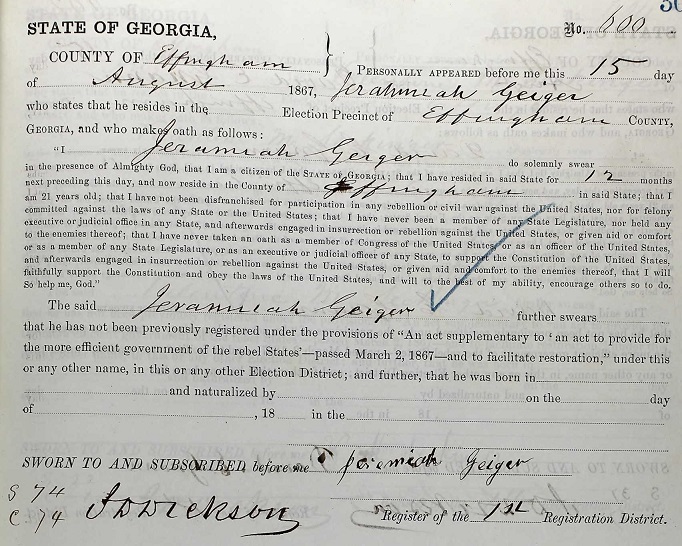 STATE OF GEORGIA,
No. 600
COUNTY OF Effingham
PERSONALLY APPEARED before me this 15 day
of August 1867, Jerahmeah Geiger
who states that he resides in the Election Precinct of Effingham COUNTY,
GEORGIA, and who makes oath as follows:
"I Jeramiah Geiger do solemnly swear
in the presence of Almighty God, that I am a citizen of the STATE OF GEORGIA; that I have resided in said State for 12 months
next preceding this day, and now reside in the County of Effingham in said State; that I
am 21 years old; that I have not been disfranchised for participation in any rebellion or civil war against the United States, nor for felony
committed against the laws of any State or the United States; that I have never been a member of any State Legislature, nor held any
executive or judicial office in any State, and afterwards engaged in insurrection or rebellion against the United States, or given aid or comfort
to the enemies thereof; that I have never taken an oath as a member of Congress of the United States, or as an officer of the United States,
or as a member of any State Legislature, or as an executive or judicial officer of any State, to support the Constitution of the United States,
and afterwards engaged in insurrection or rebellion against the United States, or given aid and comfort to the enemies thereof, that I will
faithfully support the Constitution and obey the laws of the United States, and will to the best of my ability, encourage others so to do.
So help me, God."
The said Jeramiah Geiger further swears
that he has not been previously registered under the provisions of "An act supplementary to 'an act to provide for
the more efficient government of the rebel States'—passed March 2, 1867—and to facilitate restoration," under this
or any other name, in this or any other Election District; and further, that he was born in
and naturalized by on the day
of , 18 in the
SWORN TO AND SUBSCRIBED before me Jeremiah Geiger
S 74
C 74 J D Dickson Register of the 1st Registration District.